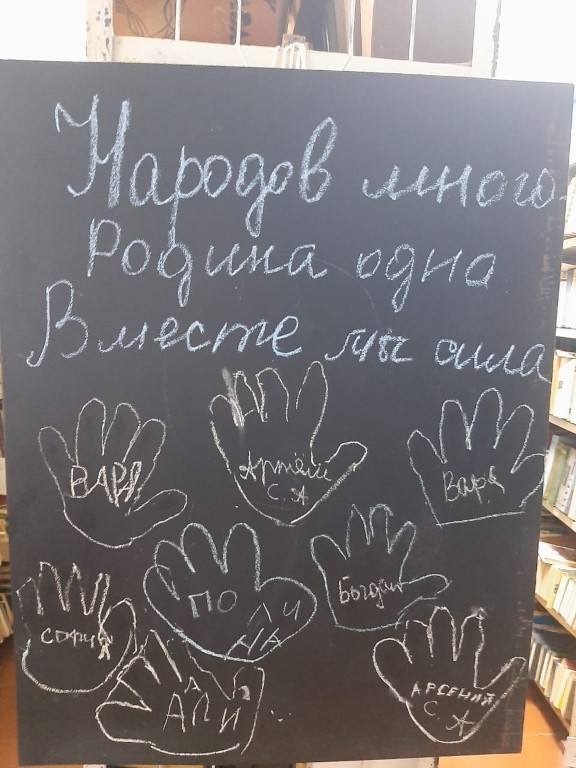 Народов много
Родина одна
Вместе мы сила
ВАРЯ
Артём
С. А
Варя
ПО ЛИ
НА
Богдан
СОФИЯ
АРСЕНИЙ
С. А